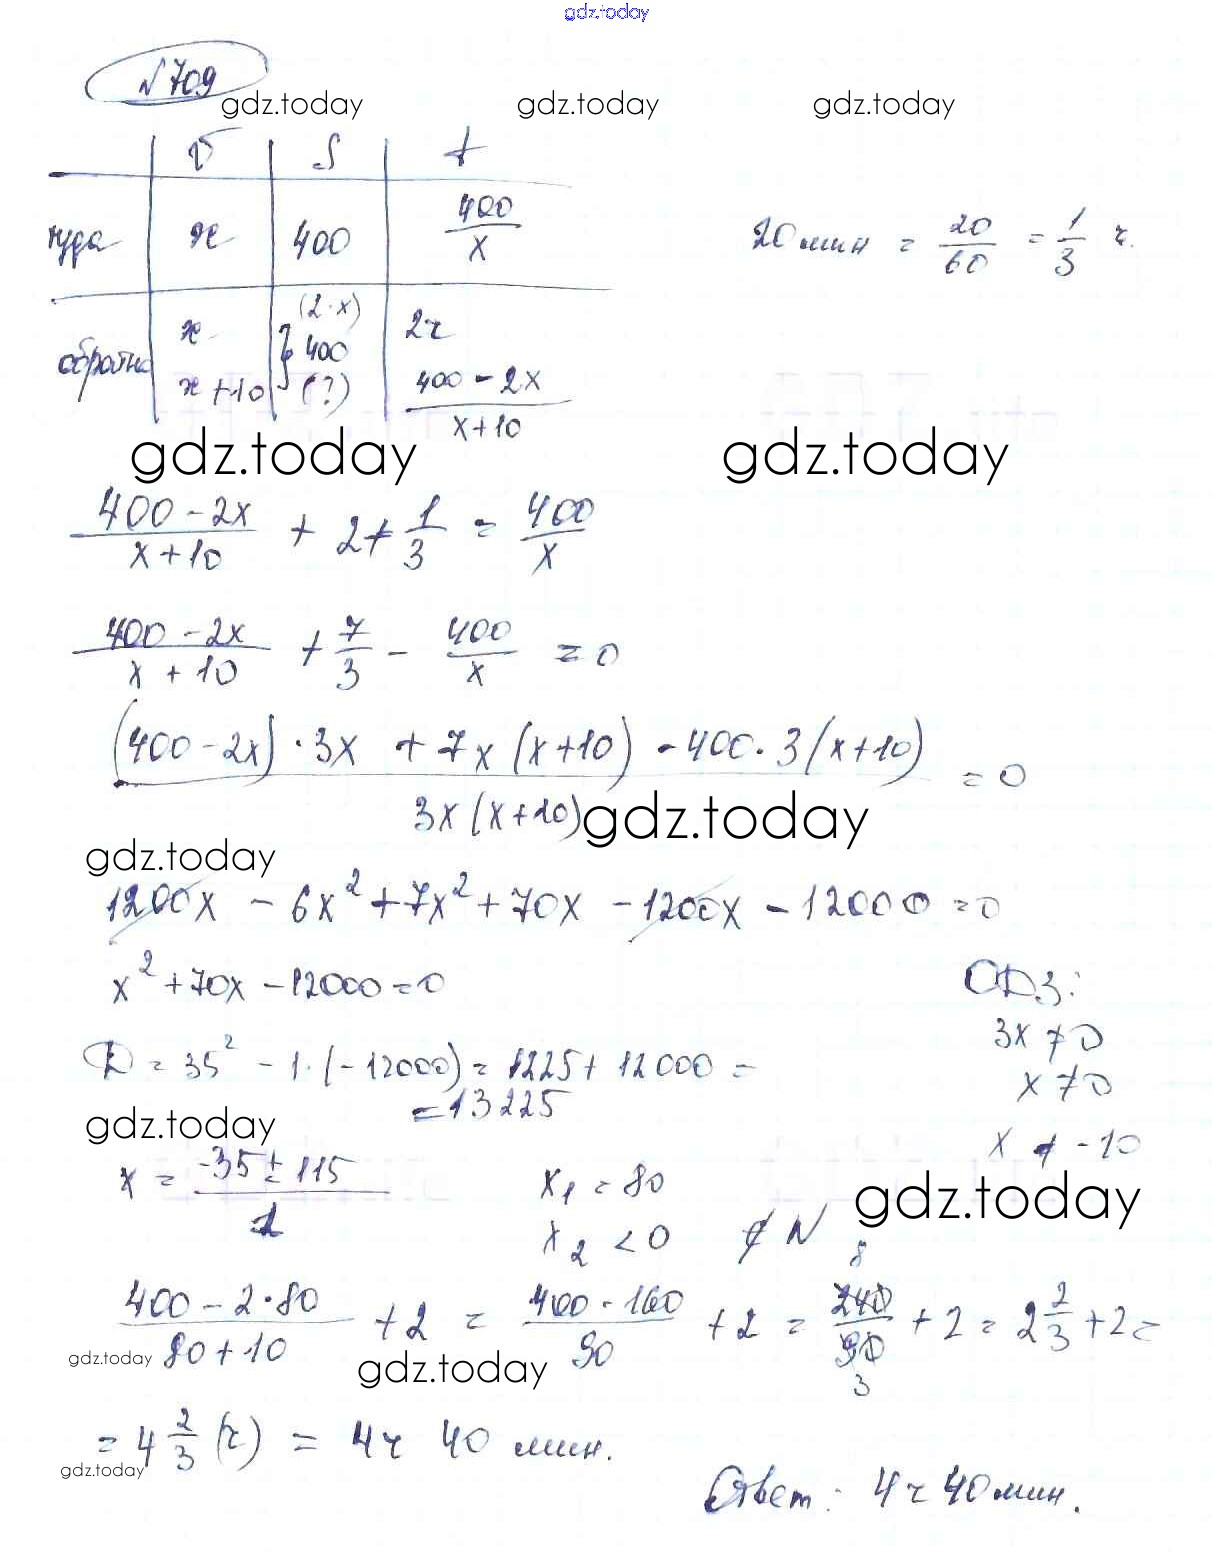 gdz.today
№ 709
gdz.today gdz.today gdz.today
v S t
туда x 400 400/x
20 мин = 20/60 = 1/3 ч.
обратно x (2·x) 2ч
400
x+10 (?) (400-2x)/(x+10)
gdz.today gdz.today
(400-2x)/(x+10) + 2 + 1/3 = 400/x
(400-2x)/(x+10) + 7/3 - 400/x = 0
((400-2x)·3x + 7x(x+10) - 400·3(x+10))/(3x(x+10)) = 0
gdz.today
gdz.today
1200x - 6x² + 7x² + 70x - 1200x - 12000 = 0
x² + 70x - 12000 = 0
ОДЗ:
3x ≠ 0
D = 35² - 1·(-12000) = 1225 + 12000 =
x ≠ 0
= 13225
gdz.today
x ≠ -10
x = (-35 ± 115)/1 x₁ = 80
gdz.today
x₂ < 0 ∉ N
(400 - 2·80)/(80+10) + 2 = (400-160)/90 + 2 = 240/90 + 2 = 2 2/3 + 2 =
8
3
gdz.today gdz.today
= 4 2/3 (ч) = 4ч 40 мин.
gdz.today
Ответ: 4ч 40мин.